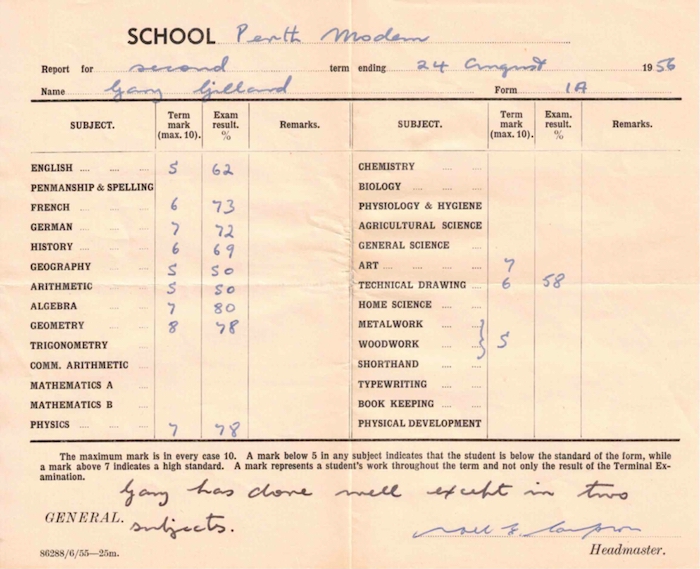 SCHOOL Perth Modern
Report for second term ending 24 August 1956
Name Gary Gillard Form 1A
SUBJECT. Term mark (max. 10). Exam result. % Remarks. SUBJECT. Term mark (max. 10). Exam. result. % Remarks.
ENGLISH 5 62 CHEMISTRY
PENMANSHIP & SPELLING BIOLOGY
FRENCH 6 73 PHYSIOLOGY & HYGIENE
GERMAN 7 72 AGRICULTURAL SCIENCE
HISTORY 6 69 GENERAL SCIENCE
GEOGRAPHY 5 50 ART 7
ARITHMETIC 5 50 TECHNICAL DRAWING 6 58
ALGEBRA 7 80 HOME SCIENCE
GEOMETRY 8 78 METALWORK
TRIGONOMETRY WOODWORK 5
COMM. ARITHMETIC SHORTHAND
MATHEMATICS A TYPEWRITING
MATHEMATICS B BOOK KEEPING
PHYSICS 7 78 PHYSICAL DEVELOPMENT
The maximum mark is in every case 10. A mark below 5 in any subject indicates that the student is below the standard of the form, while
a mark above 7 indicates a high standard. A mark represents a student's work throughout the term and not only the result of the Terminal Ex-
amination.
Gary has done well except in two
GENERAL. subjects.
Headmaster.
86288/6/55—25m.